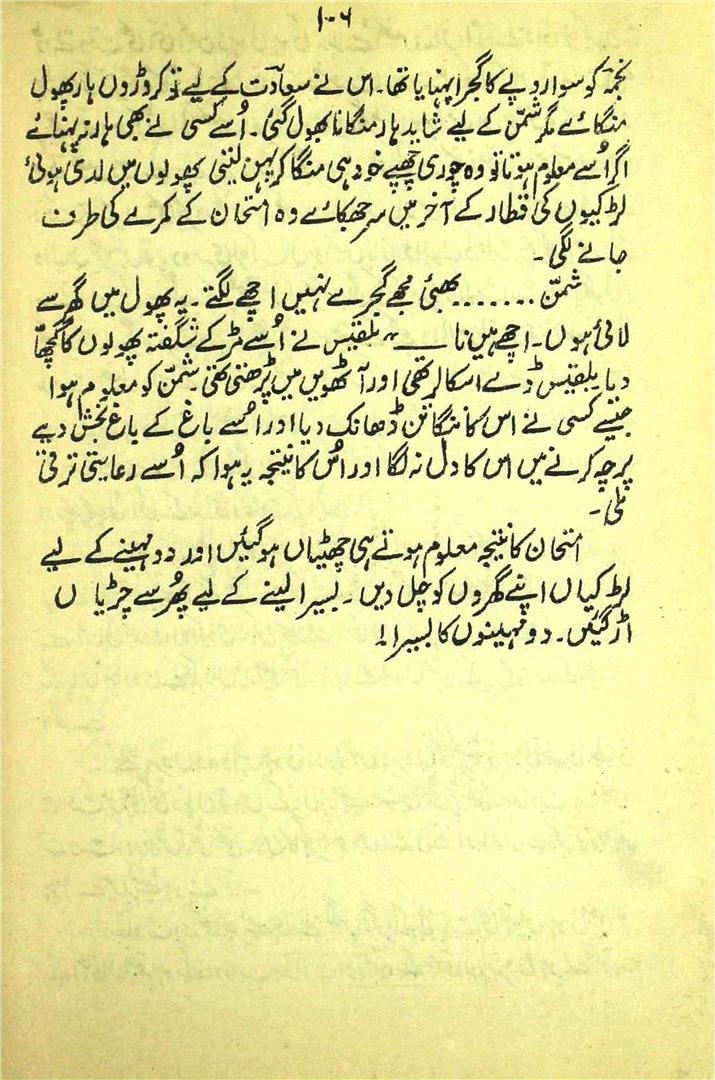 ۱۰۶
نجمہ کو سوا روپے کا گجرا پہنایا تھا۔ اس نے سعادت کے لیے تو کروڑوں ہار پھول
منگائے مگر شمّن کے لیے شاید ہار منگانا بھول گئی۔ اُسے کسی نے بھی ہار نہ پہنائے
اگر اُسے معلوم ہوتا تو وہ چوری چھپے خود ہی منگا کر پہن لیتی پھولوں میں لدی ہوئی
لڑکیوں کی قطار کے آخر میں سر جھکائے وہ امتحان کے کمرے کی طرف
جانے لگی۔
شمّن ....... بھئی مجھے گجرے نہیں اچھے لگتے۔ یہ پھول میں گھر سے
لائی ہوں۔ اچھے ہیں نا ــــ" بلقیس نے اُسے مڑ کے شگفتہ پھولوں کا گچھا
دیا بلقیس ڈے اسکالر تھی اور آٹھویں میں پڑھتی تھی۔ شمّن کو معلوم ہوا
جیسے کسی نے اس کا ننگا تن ڈھانک دیا اور اُسے باغ کے باغ بخش دیے
پرچہ کرنے میں اس کا دل نہ لگا اور اُس کا نتیجہ یہ ہوا کہ اُسے رعایتی ترقی
ملی۔
امتحان کا نتیجہ معلوم ہوتے ہی چھٹیاں ہوگئیں اور دو مہینے کے لیے
لڑکیاں اپنے گھروں کو چل دیں۔ بسیرا لینے کے لیے پھُر سے چڑیاں
اڑ گئیں۔ دو مہینوں کا بسیرا!